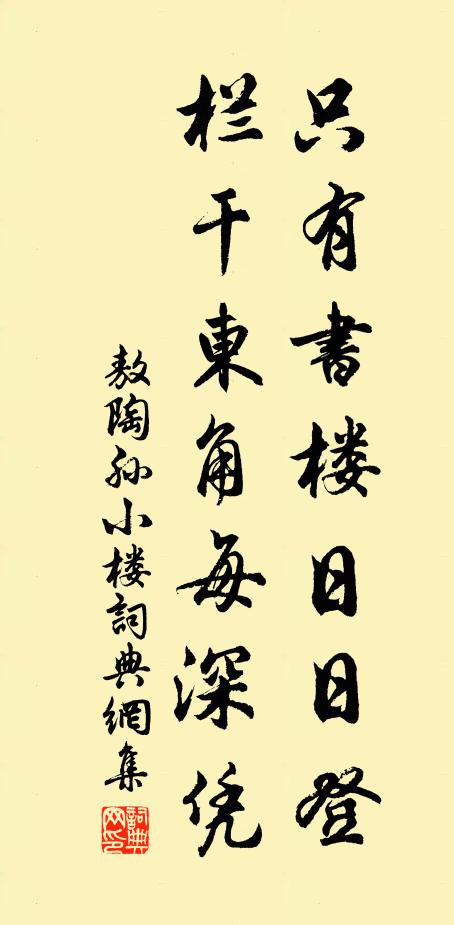 只有書楼日日登
栏干東角每深凭
敖陶孙小楼詞典網集
詞典网印